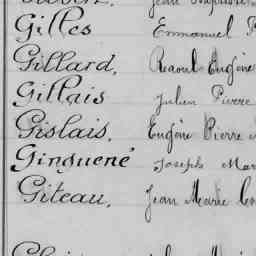 Gilles Emmanuel
Gillard, Raoul Eugène
Gillais Julien Pierre
Gislais, Eugène Pierre
Ginguené Joseph Mar
Giteau, Jean Marie